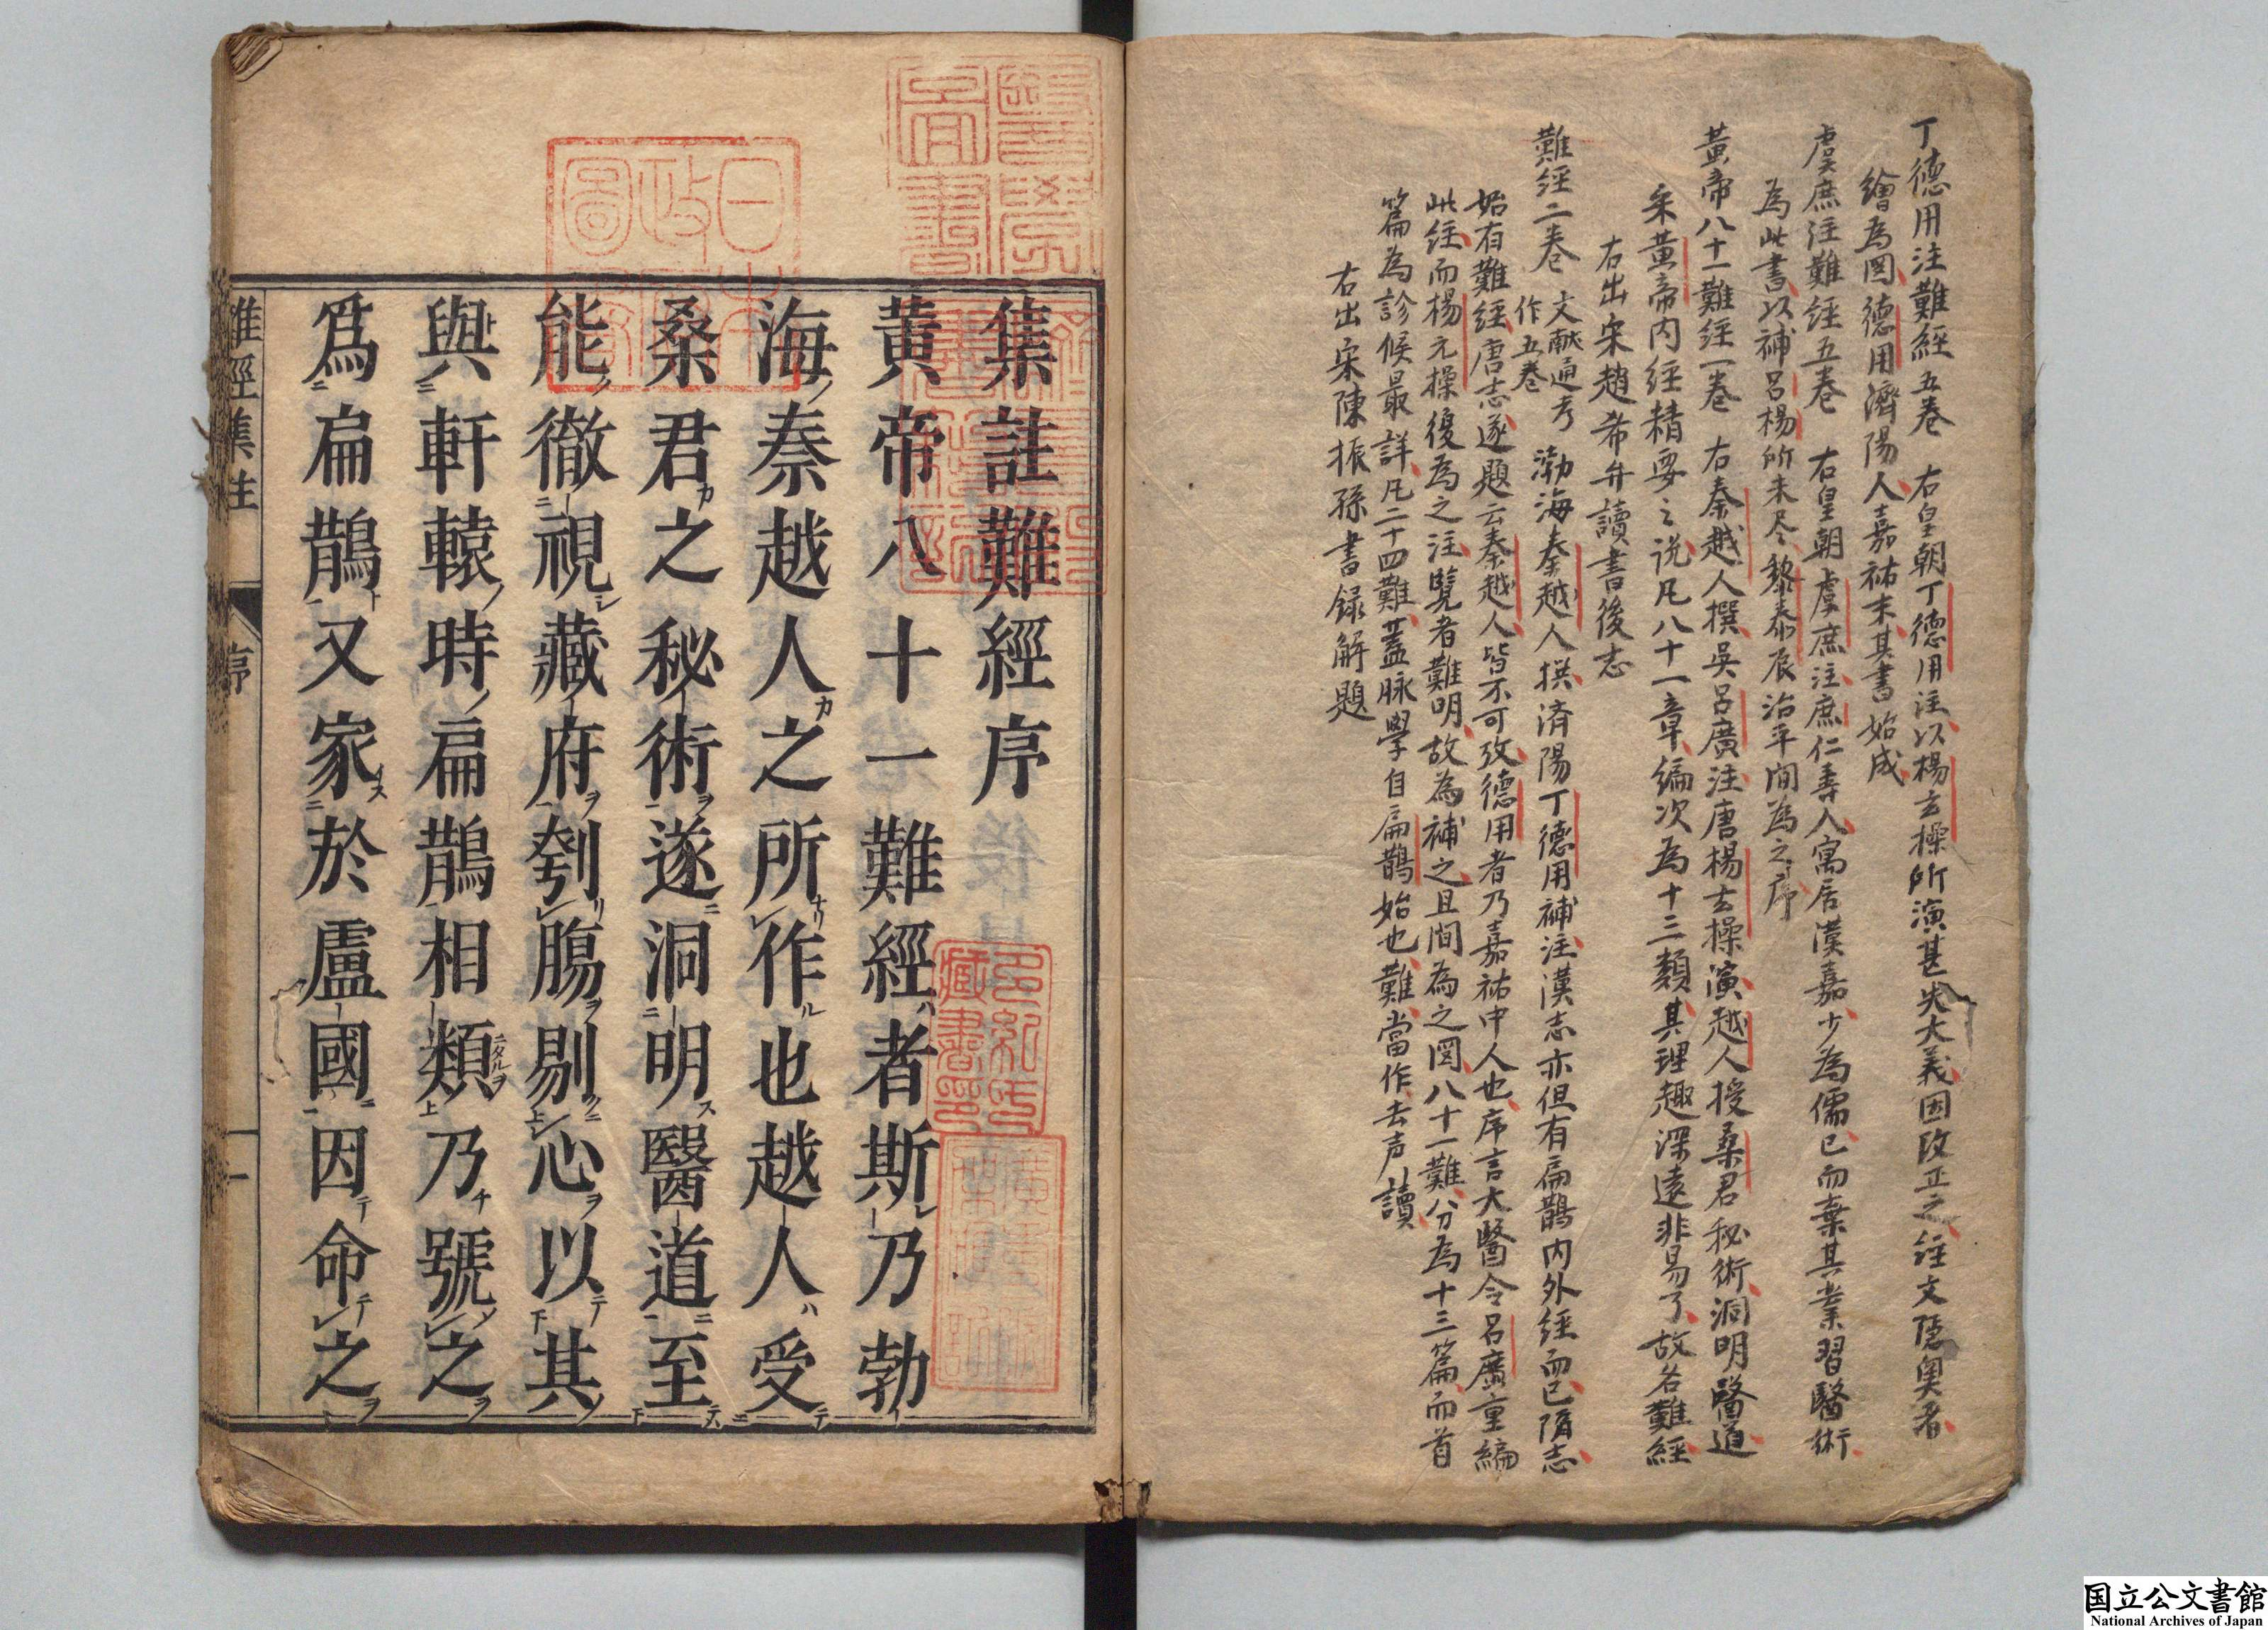 丁德用注難經五卷　右皇朝丁德用注以楊玄操所演甚失大義因改正之経文隠奥者
繪為圖德用濟陽人嘉祐末其書始成
虞庶注難経五巻　右皇朝虞庶注庶仁壽人寓居漢嘉少為儒已而棄其業習醫術
為此書以補呂楊所未尽黎泰辰治平間為之序
黃帝八十一難経一巻　右秦越人撰吳呂廣注唐楊玄操演越人授桑君秘術洞明醫道
采黃帝内経精要之説凡八十一章編次為十三類其理趣深遠非易了故名難経
右出宋趙希弁讀書後志
難経二巻　文献通考作五巻　渤海秦越人撰済陽丁德用補注漢志亦但有扁鵲内外経而已隋志
始有難経唐志遂題云秦越人皆不可攷德用者乃嘉祐中人也序言大醫令呂廣重編
此経而楊元操復為之注覽者難明故為補之且間為之圖八十一難分為十三篇而首
篇為診候最詳凡二十四難蓋脉學自扁鵲始也難當作去声讀
右出宋陳振孫書録解題
集註難經序
黄帝八十一難經ハ者斯レ乃勃
海ノ秦越人カ之所ナリ作ル也越人ハ受テ
桑君カ之秘術ヲ遂ニ洞明ス醫道ニ至テハ
能ク徹視シ藏府ヲ刳リ腸ヲ剔クニ心ヲ以テ其ノ
與ト軒轅ノ時ノ扁鵲相類ニタルヲ乃チ號ソ之ヲ
爲ニ扁鵲ト又家オス於盧國ニ因テ命テ之ヲ
難經集註　序　一
国立公文書館
National Archives of Japan